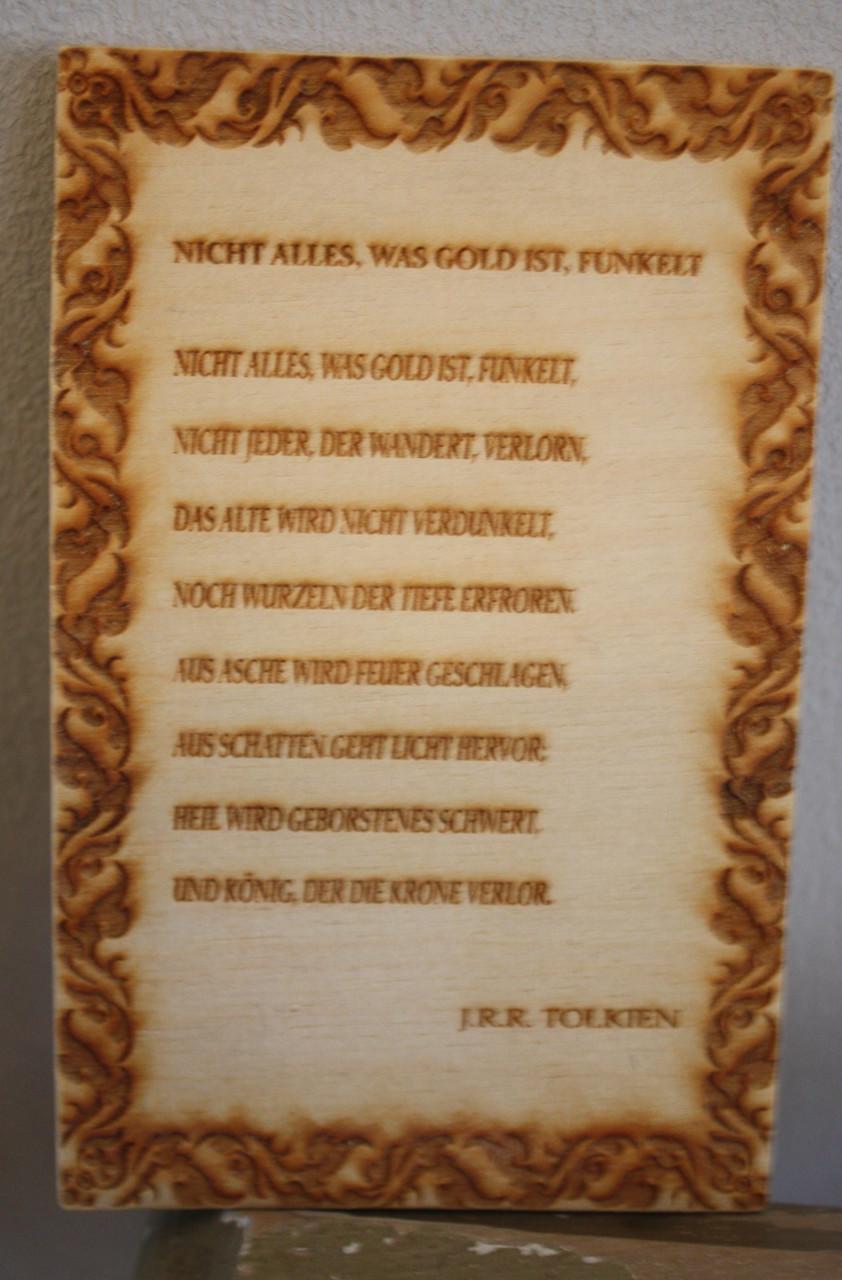 NICHT ALLES, WAS GOLD IST, FUNKELT
NICHT ALLES, WAS GOLD IST, FUNKELT,
NICHT JEDER, DER WANDERT, VERLORN,
DAS ALTE WIRD NICHT VERDUNKELT,
NOCH WURZELN DER TIEFE ERFROREN.
AUS ASCHE WIRD FEUER GESCHLAGEN,
AUS SCHATTEN GEHT LICHT HERVOR;
HEIL WIRD GEBORSTENES SCHWERT,
UND KÖNIG, DER DIE KRONE VERLOR.
J.R.R. TOLKIEN